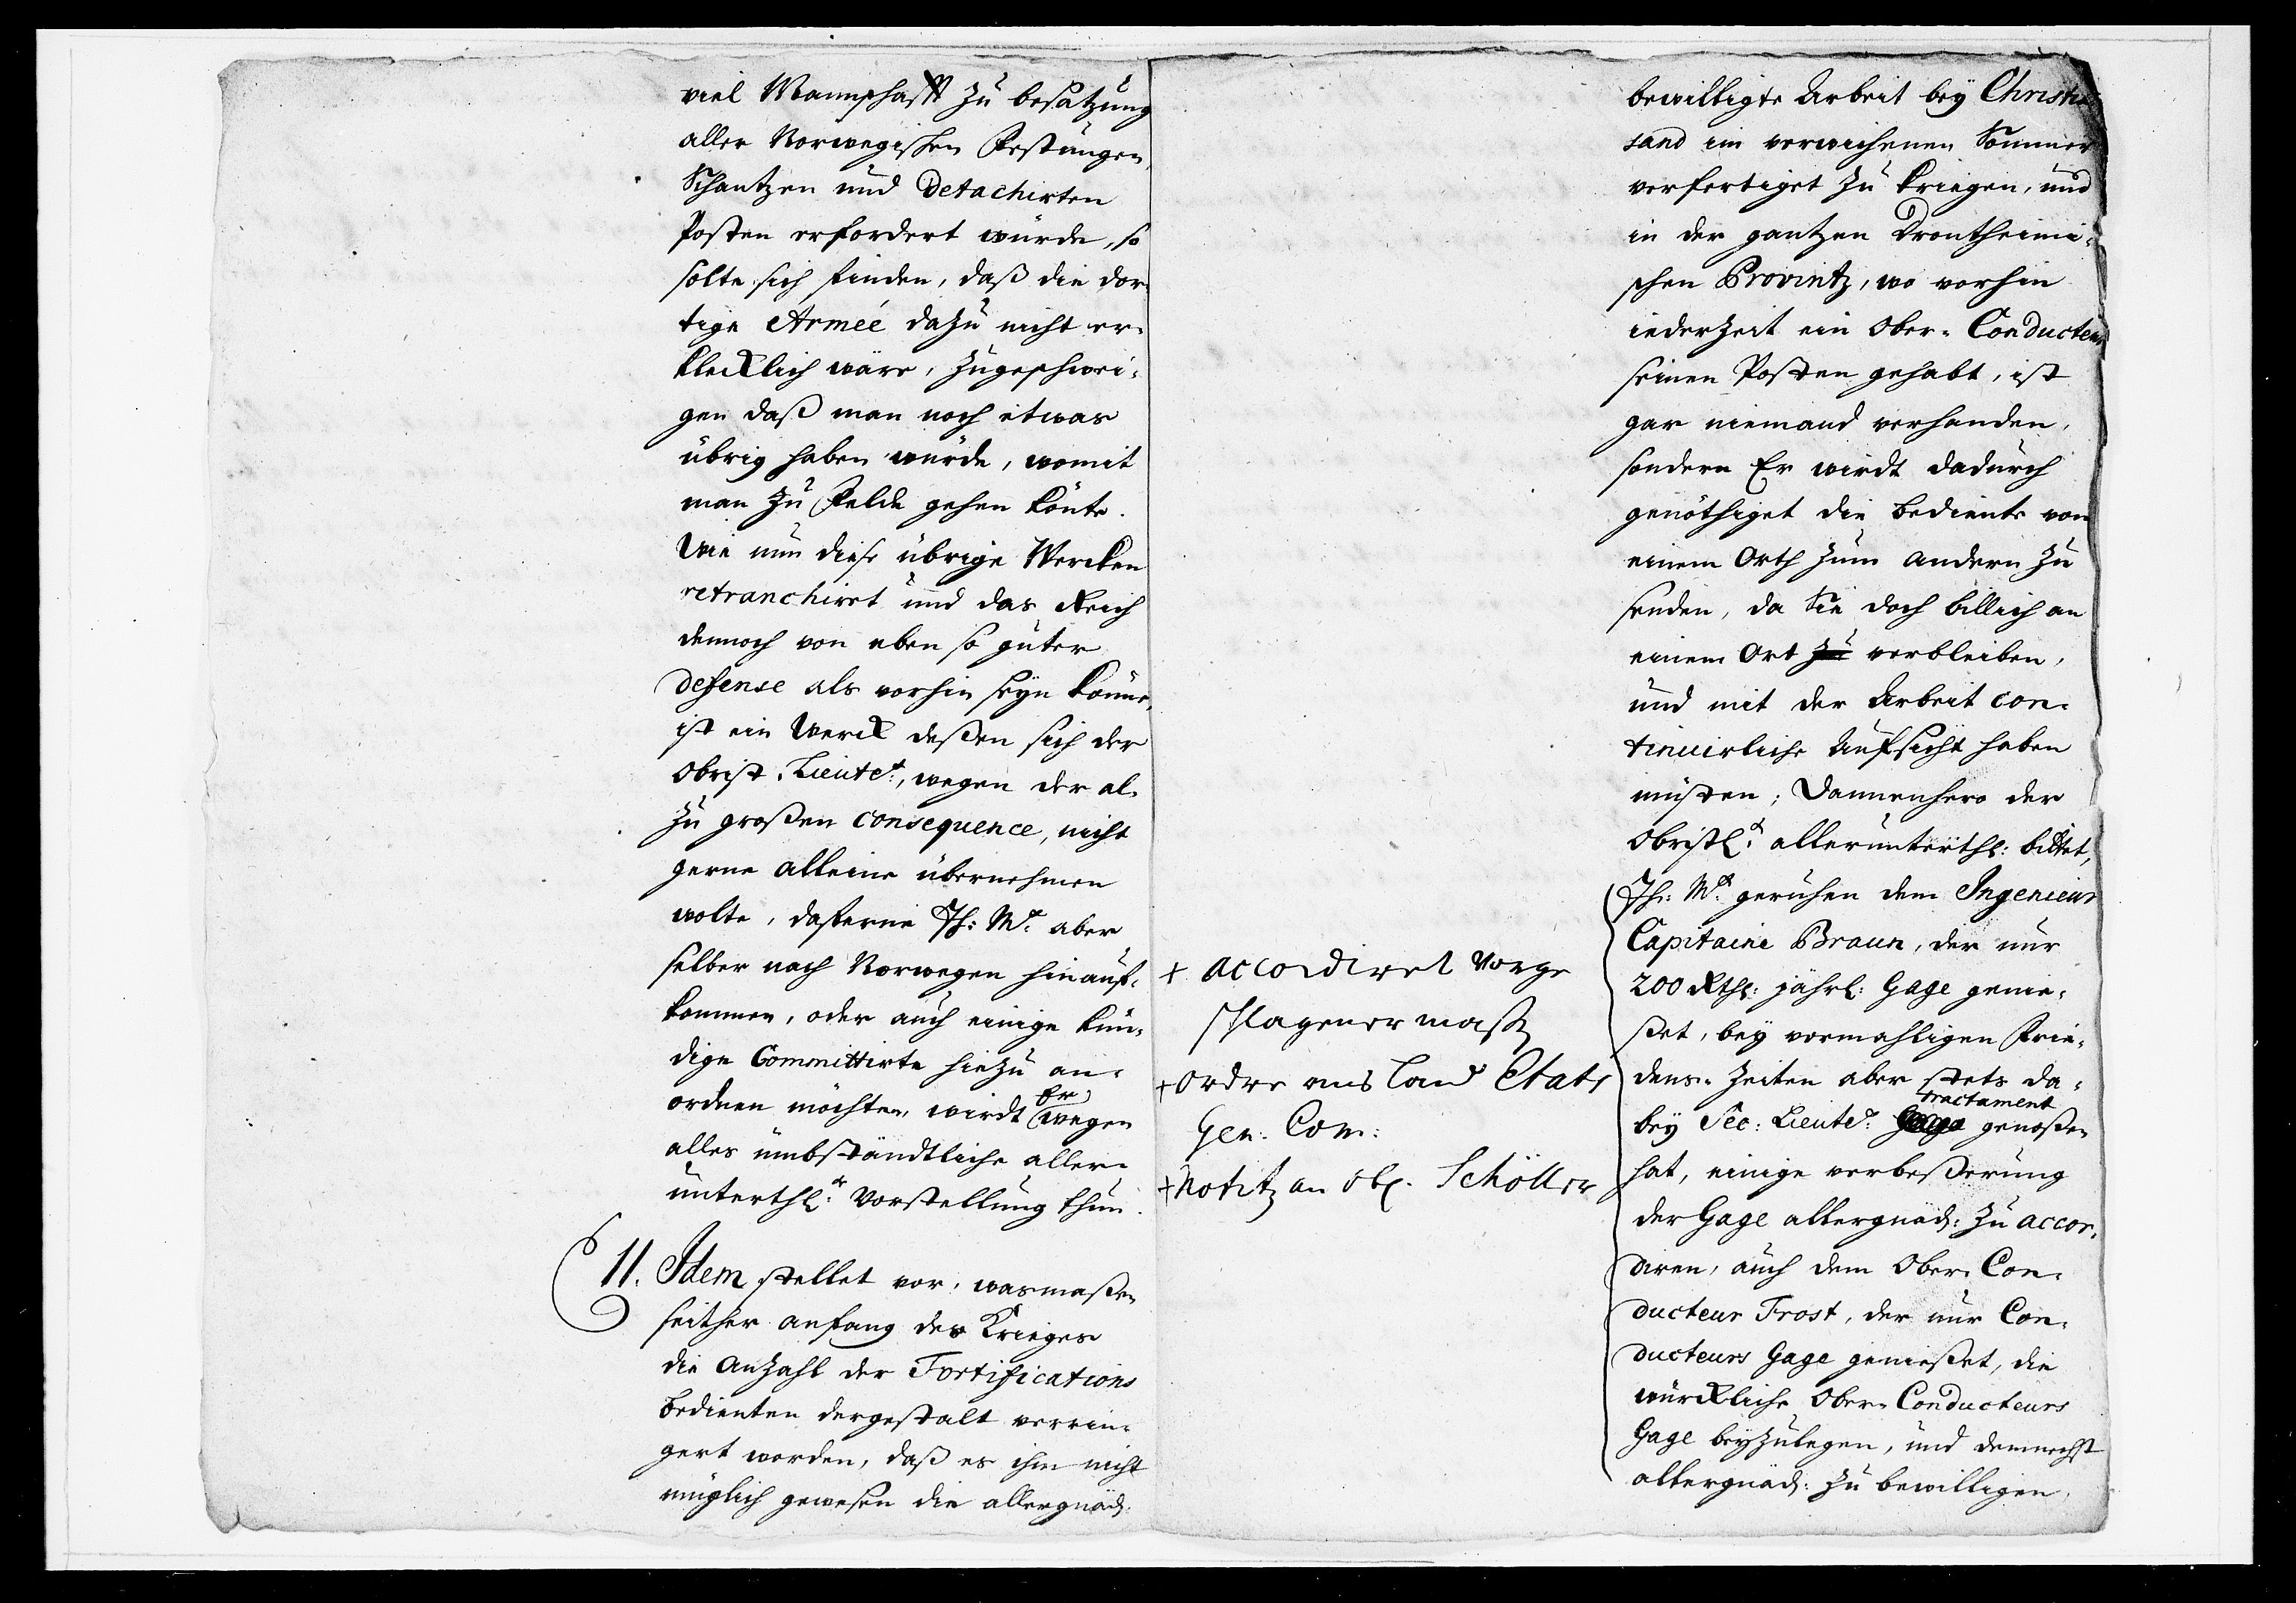 viel Mannschafft zu besatzung
aller Norwegischen Festungen,
Schantzen und Detachirten
Posten erfordert würde, so
solte sich finden, daß die dor¬
tige Armée dazu nicht er¬
klecklich wäre, zugeschwei¬
gen daß man noch etwas
übrig haben würde, womit
man zu Felde gehen könte.
Wie nun diese übrige Wercken
retranchirt und das Reich
dennoch von eben so guter
defense als vorhin seyn könne,
ist ein Werck deßen sich der
Obrist. Lieutet:, wegen der al¬
zu großen consequence, nicht
gerne alleine übernehmen
wolte, dafferne Jh: Mt aber
selber nach Norwegen hinauf¬
kommen, oder auch einige kün¬
dige Committirte hiezu an¬
ordnen möchten, wirdt Er wegen
alles umbständtliche aller¬
unterthl:r Vorstellung thun.
11. Idem stellet vor, wasmaßen
seither anfang des Krieges
die Anzahl der Fortifications
bedienten dergestalt verrin¬
gert worden, daß es ihm nicht
müglich gewesen die allergnäd:
+ accordiret vorge
schlagener maß
+ ordre ans Land Etats
Gen: Com:
+ Notitz an Obl. Schöller
bewilligte Arbeit bey Christi
sand im verwichenen Sommer
verfertiget zu kriegen, und
in der gantzen Drontheimi¬
schen Provintz, wo vorhin
iederzeit ein Ober-Conducteur
seinen Posten gehabt, ist
gar niemand verhanden,
sondern Er wirdt dadurch
genöthiget die bediente von
einem Orth zum andern zu
senden, da Sie doch billich an
einem Ort zu verbleiben,
und mit der Arbeit con¬
tinuirliche Aufsicht haben
müsten; Dannenhero der
Obristl:t allerunterthl: bittet,
Jh: Mt: geruhen dem Ingenieur
Capitaine Braun, der nur
200 Rthl: jährl: Gage genie¬
ßet, bey vormahligen Frie¬
dens-Zeiten aber stets da¬
bey Sec: Lieutet: tractament genoßen
hat, einige verbeßerung
der Gage allergnäd: zu accor¬
diren, auch dem Ober-Con¬
ducteur Frost, der nur Con¬
ducteurs Gage genießet, die
würckliche Ober-Conducteurs
Gage beyzulegen, und demnechst
allergnäd: zu bewilligen,